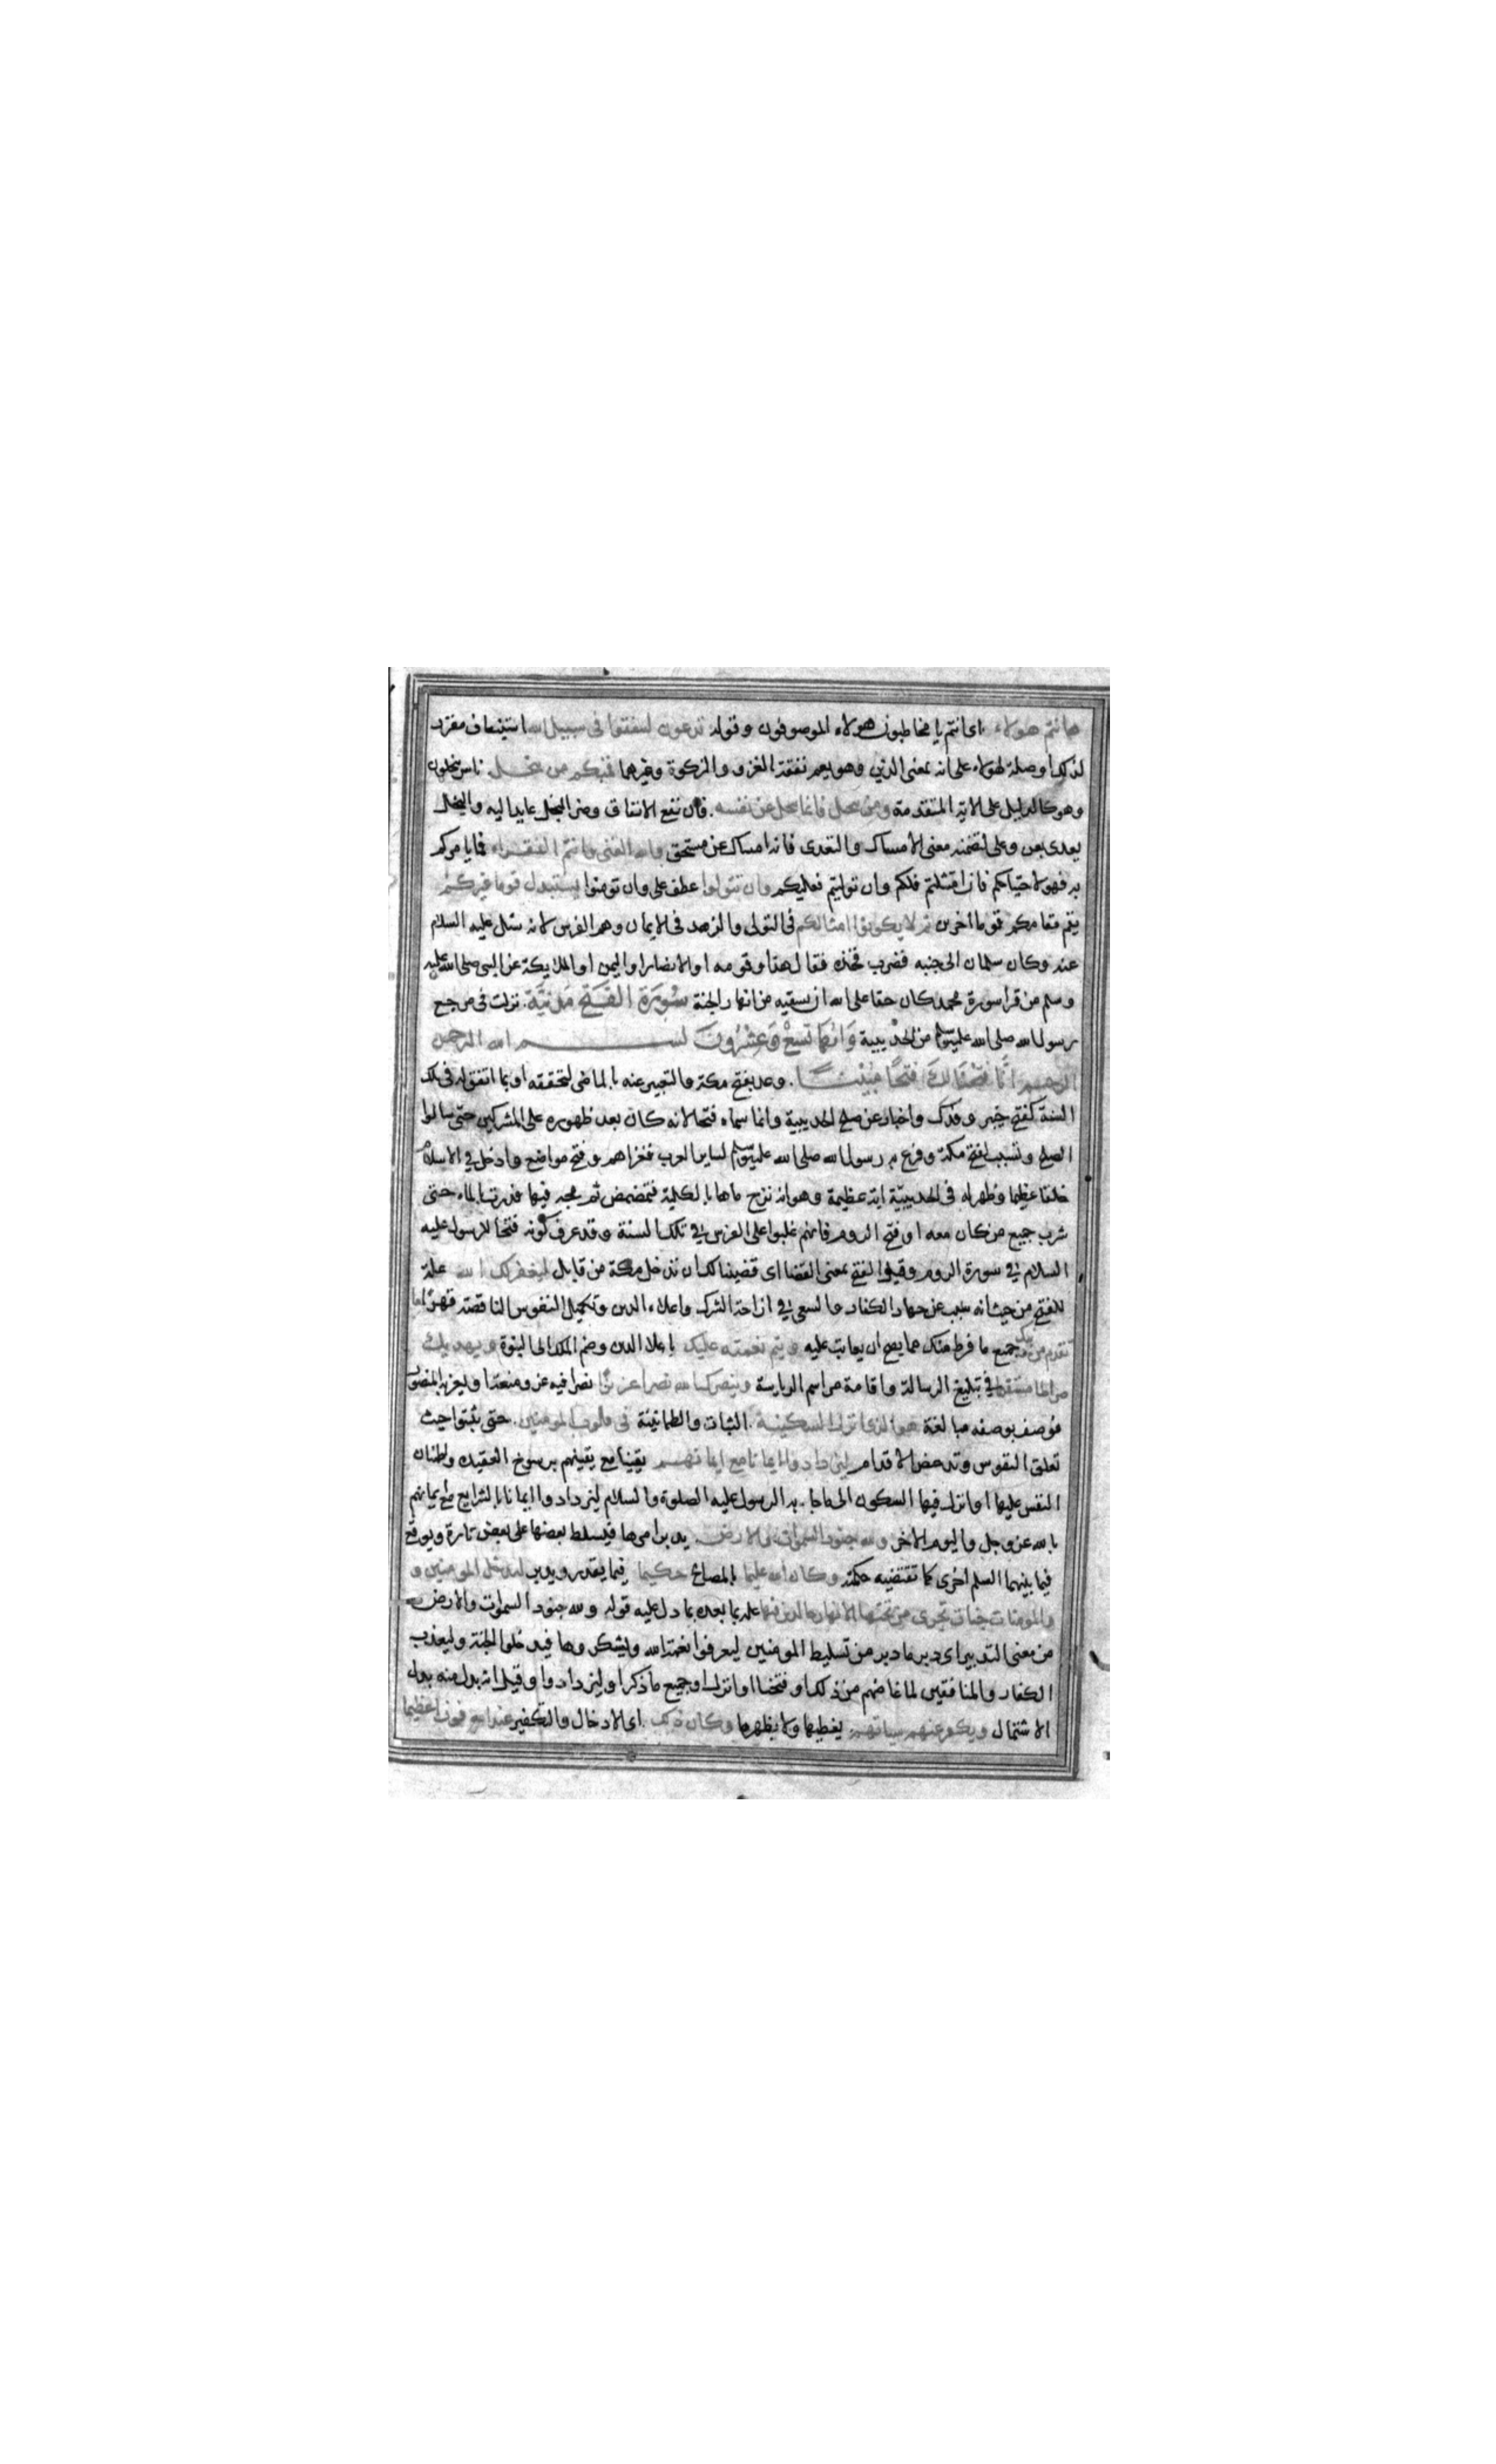 هانتم هولاء اى انتم يا مخاطبون هولاء الموصوفون وقوله تدعون لتنفقوا فى سبيل الله استيناف مقرر
لذلك اوصلة لهولاء على انه بمعنى الذين وهو يعم نفقة الغزو والزكوة وغيرهما فمنكم من يبخل ناس يبخلون
وهو كالدليل على الاية المتقدمة ومن يبخل فانما يبخل عن نفسه فان نفع الانفاق وضر البخل عايدا اليه والبخل
يعدى بعن وعلى لتضمنه معنى الامساك والتعدى فانه امساك عن مستحق والله الغنى وانتم الفقراء فما يامركم
به فهو لاحتياجكم فان امتثلتم فلكم وان توليتم فعليكم وان تتولوا عطف على وان تومنوا يستبدل قوما غيركم
يقم مقامكم قوما اخرين ثم لا يكونوا امثالكم فى التولى والزهد فى الايمان وهم الفرس لانه سئل عليه السلام
عنه وكان سلمان الى جنبه فضرب فخذه فقال هذا وقومه او الانصار او اليمن او الملايكة عن النبى صلى الله عليه
وسلم من قرا سورة محمد كان حقا على الله ان يسقيه من انهار الجنة سُورَة الفَتْح مَدنيَّة نزلت فى مرجع
رسول الله صلى الله عليه وسلم من الحديبية وَايُهَا تسعٌ وَعِشْرُونَ بســـم الله الرحمن
الرحيم انَّا فتَحْنَا لكَ فتحًا مُبيْنًا وعد بفتح مكة والتعبير عنه بالماضى لتحققه او بما اتفق له فى تلك
السنة كفتح خيبر وفدك واخبار عن صلح الحديبية وانما سماه فتحا لانه كان بعد ظهوره على المشركين حتى سالوا
الصلح وتسبب لفتح مكة وفرغ به رسول الله صلى الله عليه وسلم لساير العرب فغزاهم وفتح مواضع وادخل فى الاسلام
خلقا عظيما وظهر له فى الحديبيّة اية عظيمة وهو انه نزح ماها بالكلية فتمضمض ثم مجه فيها فدرت بالماء حتى
شرب جميع من كان معه او فتح الروم فانهم غلبوا على الفرس فى تلك السنة وقد عرف كونه فتحا للرسول عليه
السلام فى سورة الروم وقيل الفتح بمعنى القضا اى قضينا لك ان تدخل مكة من قابل ليغفر لك الله علة
للفتح من حيث انه سبب عن جهاد الكفار والسعى فى ازاحة الشرك واعلاء الدين وتكميل النفوس الناقصة قهرا
تقدم من ذنبك جميع ما فرط منك مما يصح ان يعاتب عليه ويتم نعمته عليك باعلا الدين وضم الملك الى النبوة ويهديك
صراطا مستقيما فى تبليغ الرسالة واقامة مراسم الرياسة وينصرك الله نصرا عزيزًا نصرا فيه عز ومنعة او يعز به المنصور
فوصف بوصفه مبالغة هو الذى انزل السكينة الثبات والطمانينة فى قلوب المومنين حتى يثبتوا حيث
تعلق النفوس وتدحض الاقدام ليزدادوا ايمانا مع ايمانهم يقينا مع يقينهم برسوخ العقيدة واطمئنان
النفس عليها او انزل فيها السكون الى ما جا به الرسول عليه الصلوة والسلام ليزدادوا ايمانا بالشرايع مع ايمانهم
بالله عز وجل واليوم الاخر ولله جنود السموات والارض يدبر امرها فيسلط بعضها على بعض تارة ويوقع
فيما بينهما السلم اخرى كما تقتضيه حكمته وكان الله عليما بالمصالح حكيما فيما يقدر ويدبر ليدخل المومنين و
والمومنات جنات تجرى من تحتها الانهار خالدين فيها علة بما بعده بما دل عليه قوله ولله جنود السموات والارض
من معنى التدبير اى دبر ما دبر من تسليط المومنين ليعرفوا نعمة الله ويشكروها فيدخلوا الجنة وليعذب
الكفار والمنافقين لما غاضهم من ذلك او فتحنا او انزل او جميع ما ذكر او ليزدادوا وقيل انه بدل منه بدل
الاشتمال ويكفر عنهم سياتهم يغطيها ولا يظهرها وكان ذلك اى الادخال والتكفير عند الله فوزا عظيما